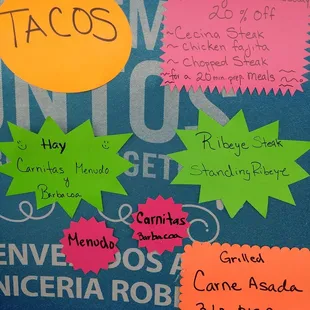 TACOS
20% Off
~ Cecina Steak
~ Chicken fajita
~ Chopped Steak
~for a 20 min prep meals~
Hay
Carnitas Menudo
y
Barbacoa
Ribeye Steak
Standing Ribeye
GET
Menudo
Carnitas
Barbacoa
Grilled
Carne Asada